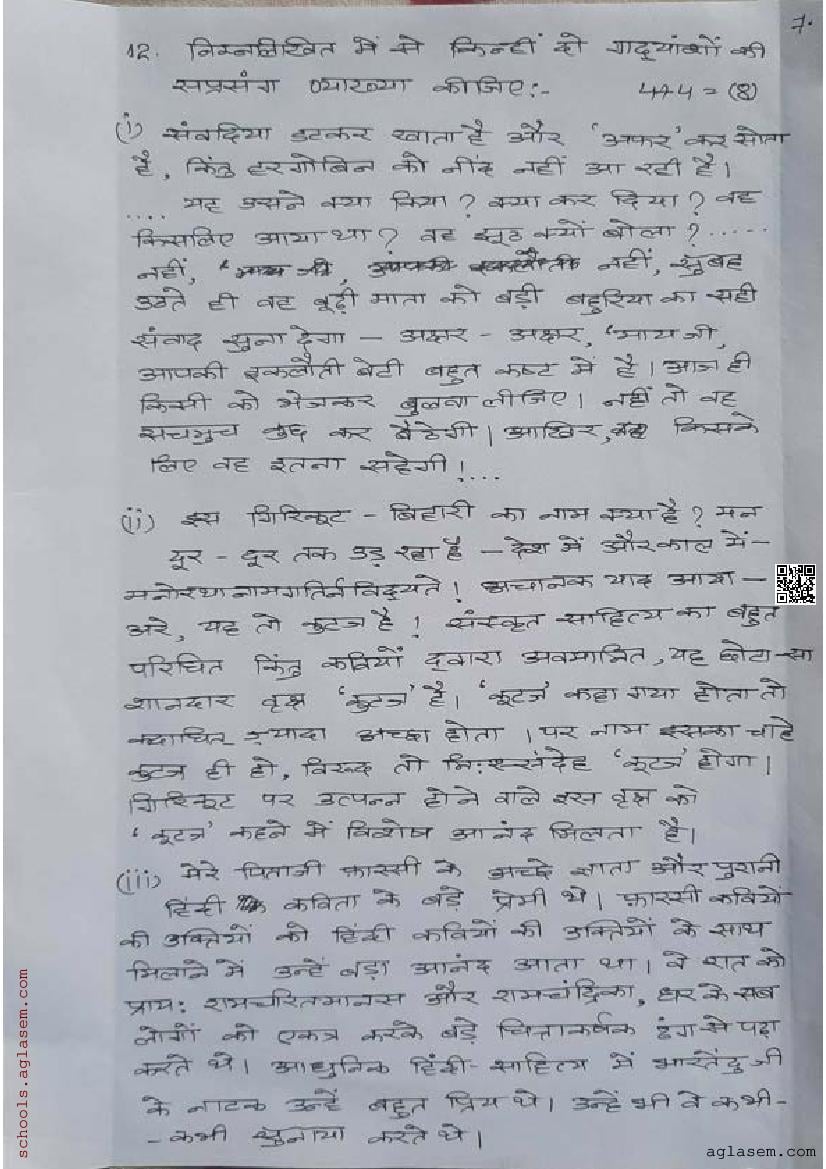 7.
12. निम्नलिखित में से किन्हीं दो गद्यांशों की
सप्रसंग व्याख्या कीजिए:- 4+4=(8)
(i) संवदिया डटकर खाता है और 'अफर' कर सोता
है, किंतु हरगोबिन को नींद नहीं आ रही है।
.... यह उसने क्या किया? क्या कर दिया? वह
किसलिए आया था? वह झूठ क्यों बोला?.....
नहीं, नहीं, सुबह
उठते ही वह बूढ़ी माता को बड़ी बहुरिया का सही
संवाद सुना देगा - अक्षर - अक्षर, 'मायजी,
आपकी इकलौती बेटी बहुत कष्ट में है। आज ही
किसी को भेजकर बुलवा लीजिए। नहीं तो वह
सचमुच कुछ कर बैठेगी। आखिर, किसके
लिए वह इतना सहेगी!...
(ii) इस गिरिकूट - बिहारी का नाम क्या है? मन
दूर - दूर तक उड़ रहा है - देश में और काल में -
मनोरथानामगतिर्न विद्यते! अचानक याद आया -
अरे, यह तो कुटज है! संस्कृत साहित्य का बहुत
परिचित किंतु कवियों द्वारा अवमानित, यह छोटा-सा
शानदार वृक्ष 'कुटज' है। 'कूटज' कहा गया होता तो
कदाचित ज़्यादा अच्छा होता । पर नाम इसका चाहे
कुटज ही हो, विरुद तो निःस्संदेह 'कूटज' होगा।
गिरिकूट पर उत्पन्न होने वाले इस वृक्ष को
'कूटज' कहने में विशेष आनंद मिलता है।
(iii) मेरे पिताजी फ़ारसी के अच्छे ज्ञाता और पुरानी
हिंदी कविता के बड़े प्रेमी थे। फ़ारसी कवियों
की उक्तियों को हिंदी कवियों की उक्तियों के साथ
मिलाने में उन्हें बड़ा आनंद आता था। वे रात को
प्राय: रामचरितमानस और रामचंद्रिका, घर के सब
लोगों को एकत्र करके बड़े चित्ताकर्षक ढंग से पढ़ा
करते थे। आधुनिक हिंदी-साहित्य में भारतेंदु जी
के नाटक उन्हें बहुत प्रिय थे। उन्हें भी वे कभी-
-कभी सुनाया करते थे।
schools.aglasem.com
aglasem.com